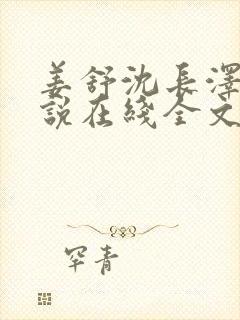 姜舒沈长澤
說在綫全文
罕青